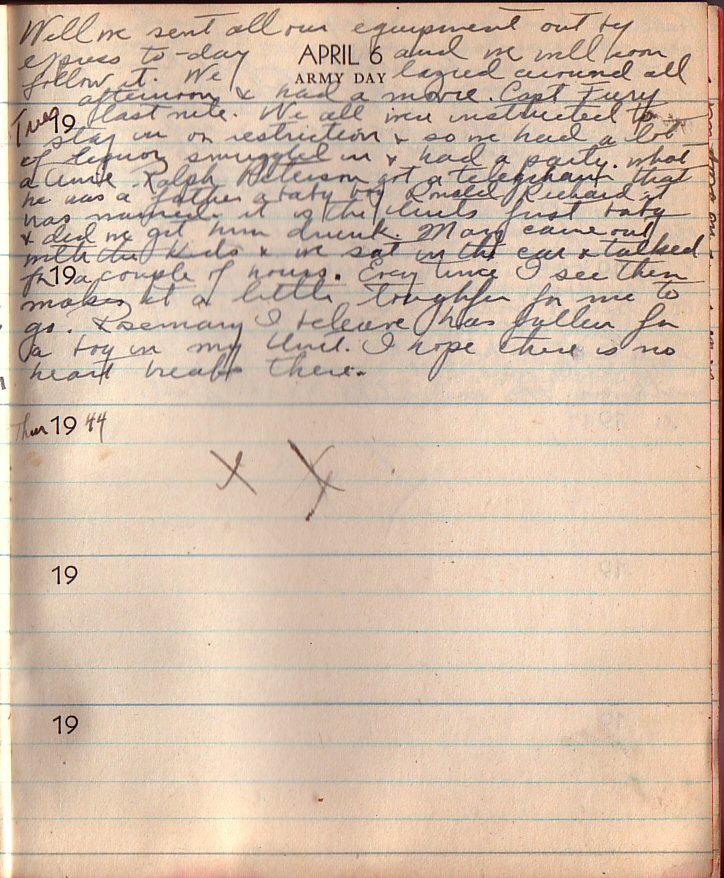 Well we sent all our equipment out by
express to-day APRIL 6 and we will soon
follow it. We ARMY DAY lazied around all
afternoon & had a movie. Capt Fury
Tues 19 last nite. We all were instructed to
stay in on restriction & so we had a lot
of liquor smuggled in & had a party. What
a time. Ralph Peterson got a telegram that
he was a father a baby boy Ronald Richard it
was named. it is the Units first baby
& did we get him drunk. Mary came out
with the kids & we sat in the car & talked
19 for a couple of hours. Every time I see them
makes it a little tougher for me to
go. Rosemary I beleave has fallen for
a boy in my Unit. I hope there is no
heart breaks there.
Thur 19 44
X X
19
19